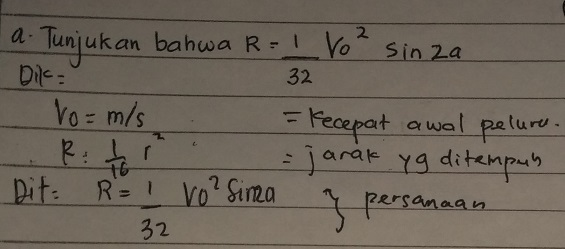 a. Tunjukan bahwa R = 1/32 Vo² sin 2a
Dik =
Vo = m/s = Kecepat awal peluru.
R = 1/16 r² = jarak yg ditempuh
Dit = R = 1/32 Vo² Sin2a } persanaan